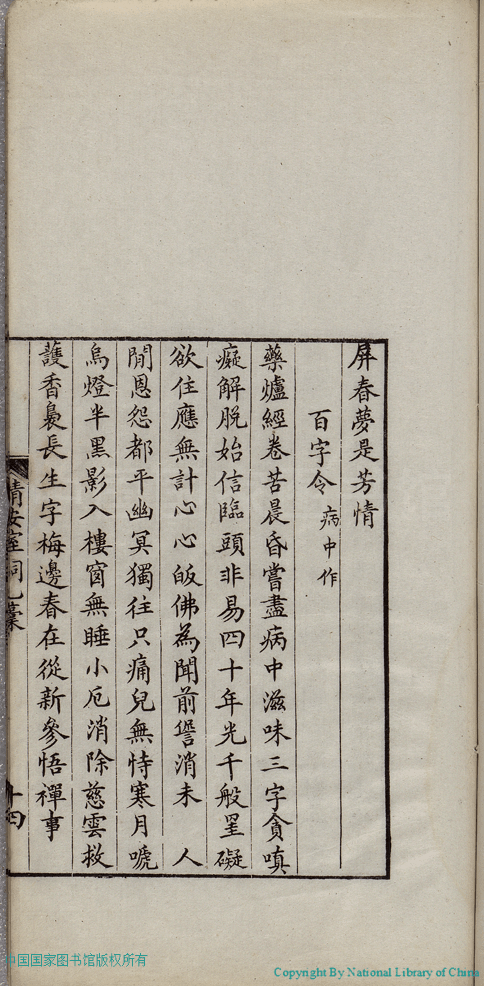 屏春夢是芳情
百字令 病中作
藥爐經卷苦晨昏嘗盡病中滋味三字貪嗔
癡解脫始信臨頭非易四十年光千般罣礙
欲住應無計心心皈佛為聞前譽消未 人
間恩怨都平幽冥獨往只痛兒無恃寒月唬
烏燈半黑影入樓窗無睡小厄消除慈雲救
護香裊長生字梅邊春在從新參悟禪事
室詞
十四
中国国家图书馆版权所有
Copyright By National Library of China